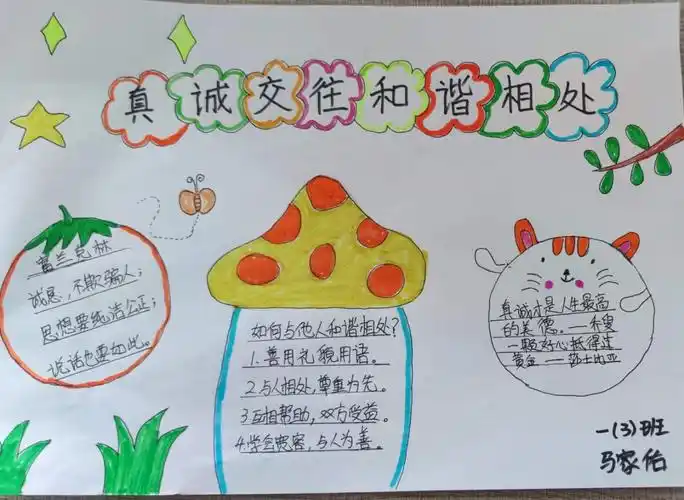 真诚交往和谐相处
富兰克林
诚恳，不欺骗人；
思想要纯洁公正；
说话也要如此。
如何与他人和谐相处？
1.善用礼貌用语。
2.与人相处，尊重为先。
3.互相帮助，双方受益。
4.学会宽容，与人为善。
真诚才是人生最高
的美德。——乔叟
一颗好心抵得过
黄金——莎士比亚
一(3)班
马家佑